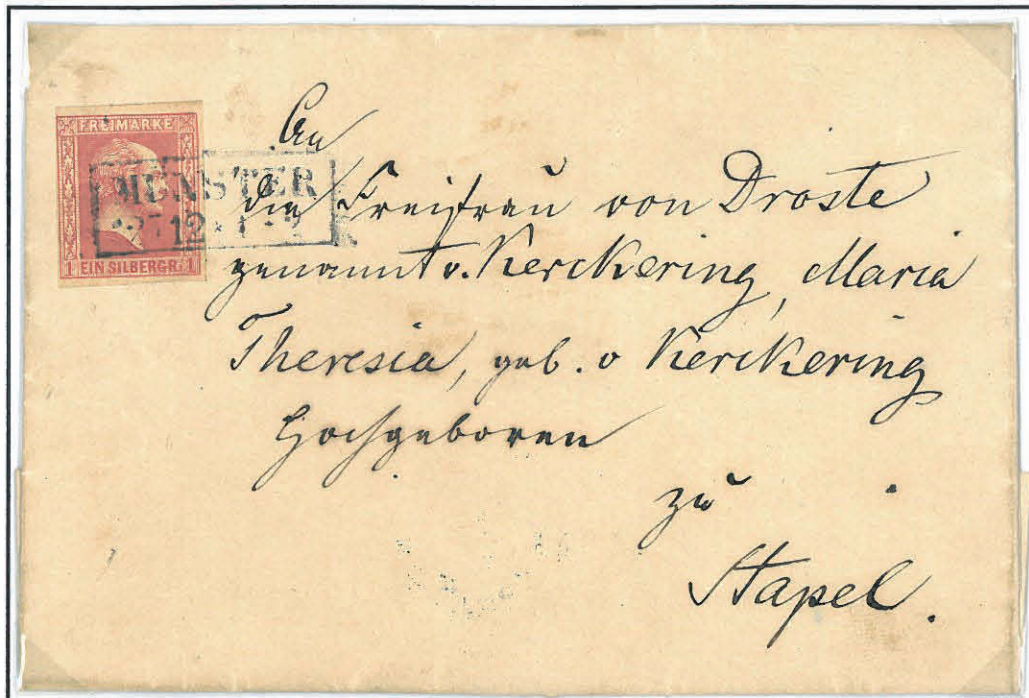 FREIMARKE
MÜNSTER
12
1 EIN SILBERGR. 1
An
die Freifrau von Droste
genannt v. Kerckering, Maria
Theresia, geb. v Kerckering
Hochgeboren
zu
Stapel.